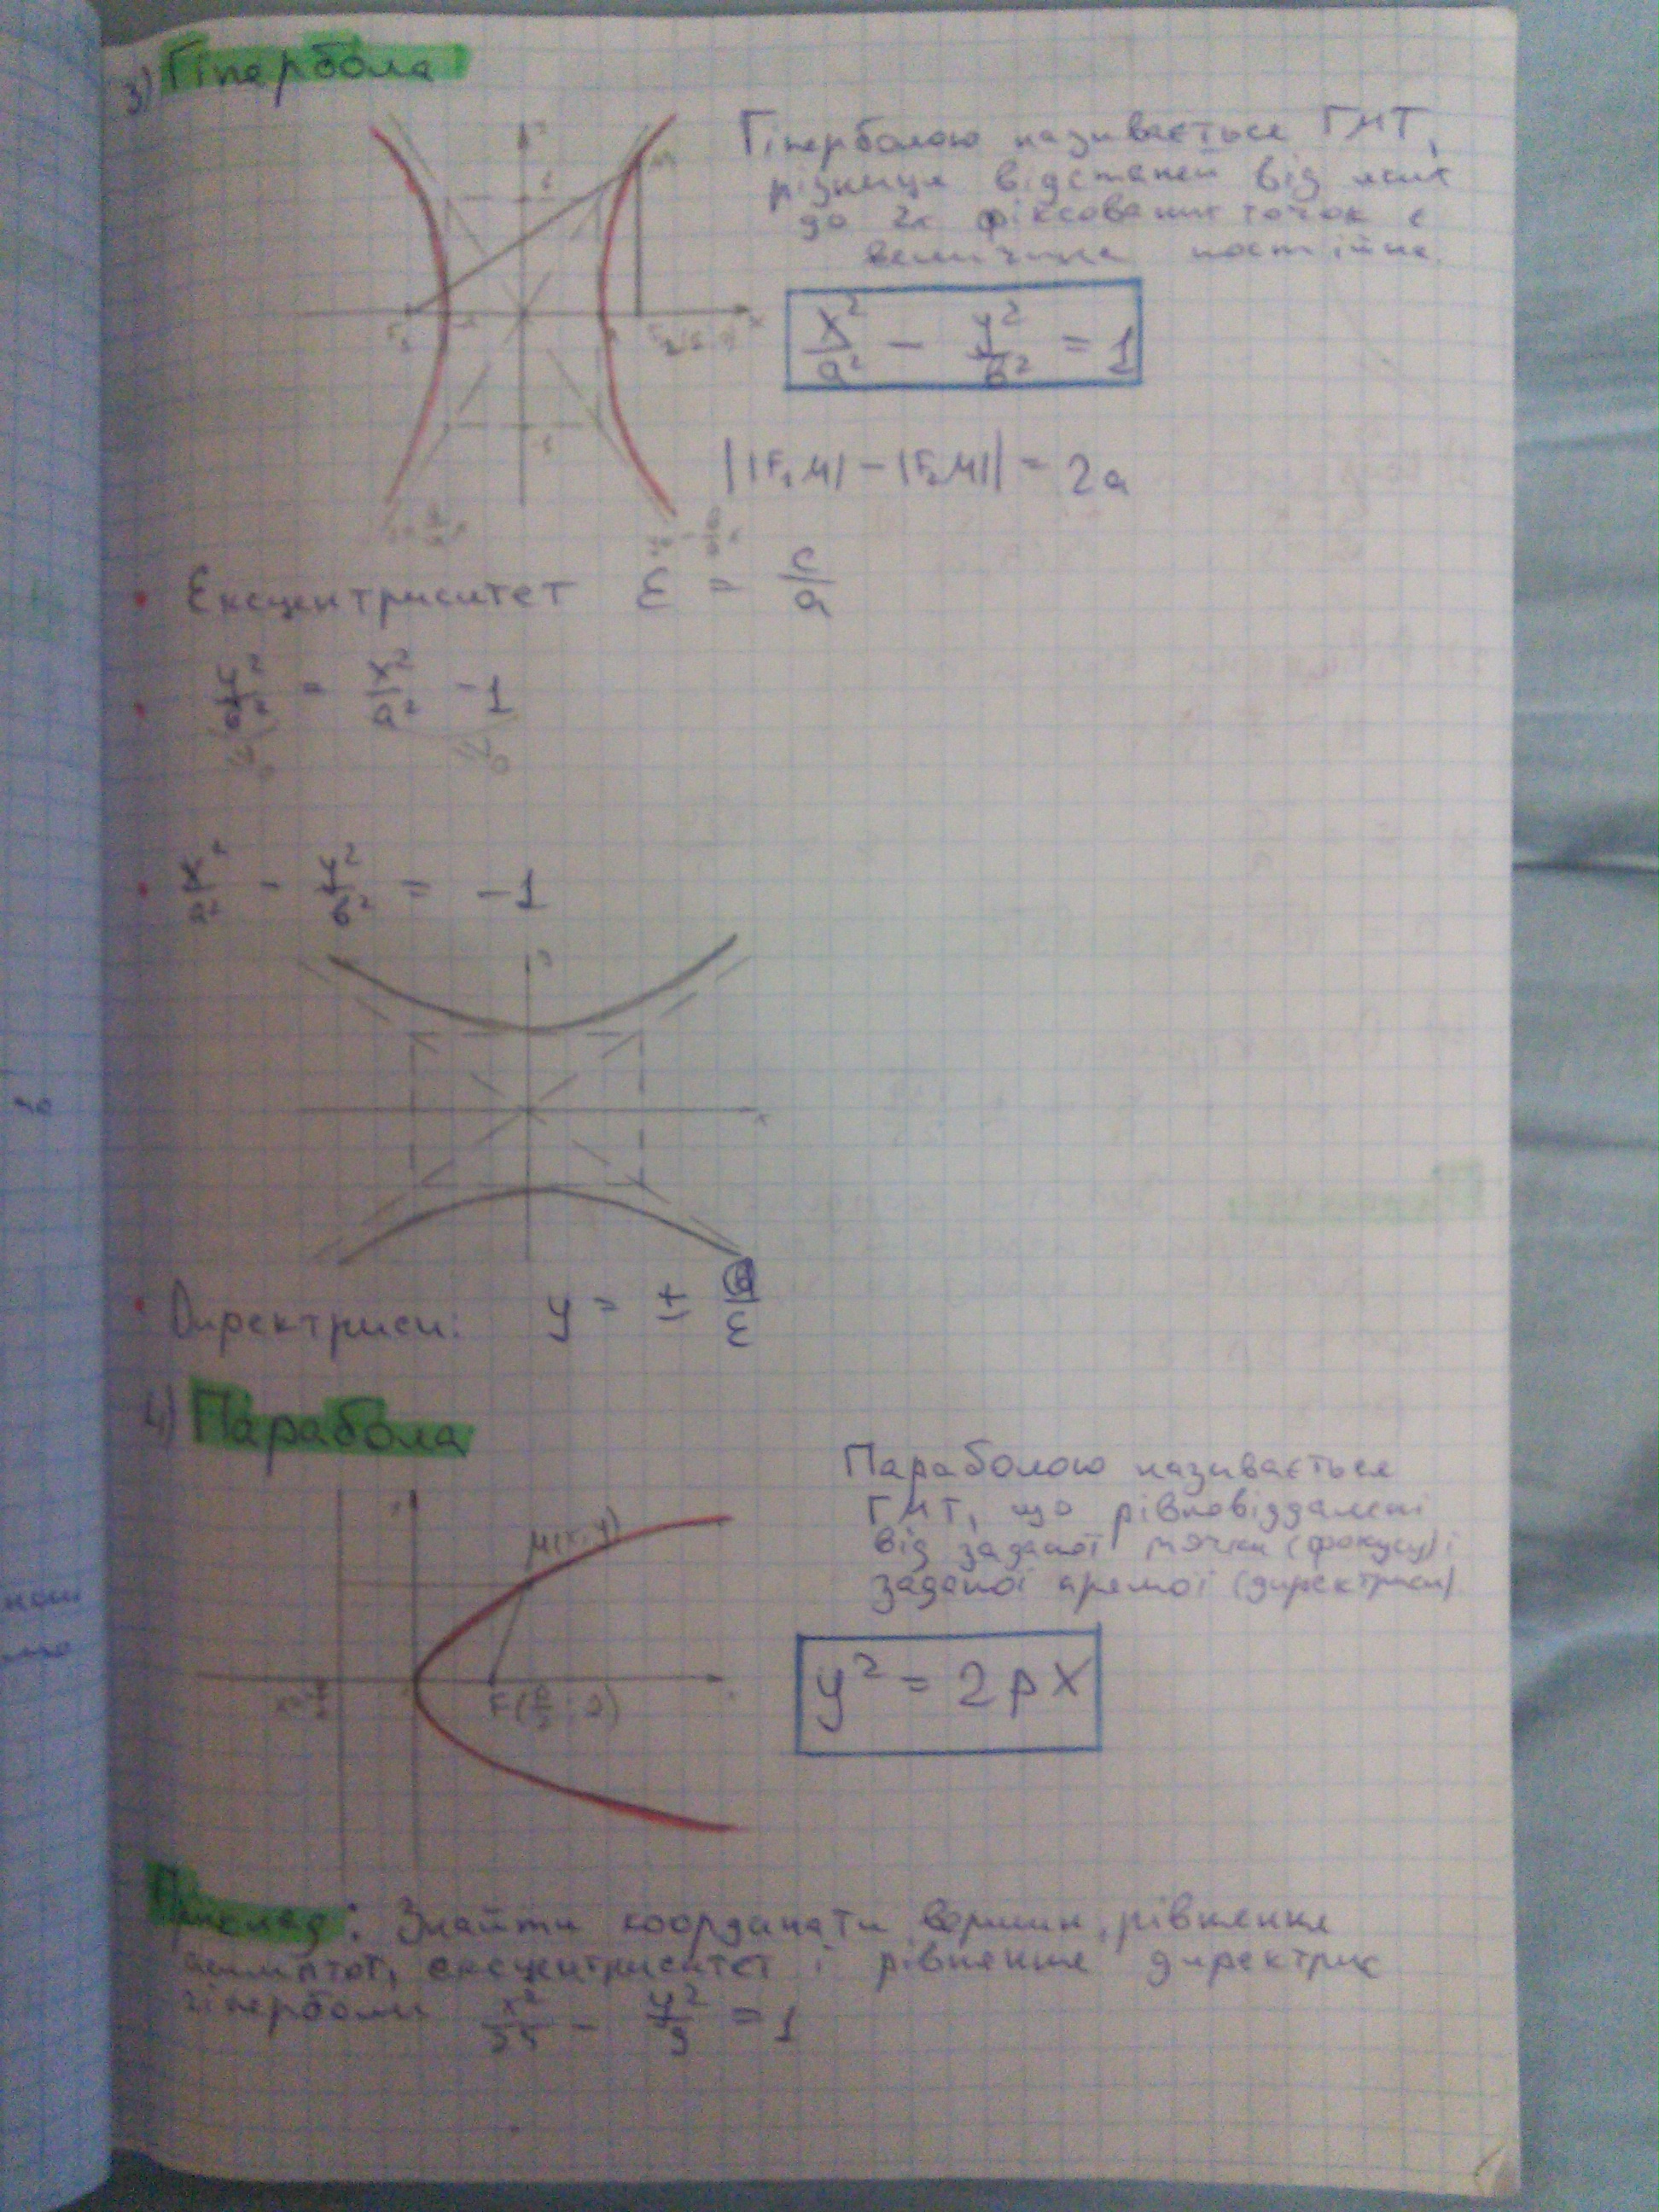 3) Гіпербола
Гіперболою називається ГМТ,
різниця відстаней від яких
до 2х фіксованих точок є
величина постійна.
x²/a² - y²/b² = 1
||F₁M| - |F₂M|| = 2a
Ексцентриситет ε = c/a
y²/b² = x²/a² - 1
x²/a² - y²/b² = -1
Директриси: y = ±
4) Парабола
Параболою називається
ГМТ, що рівновіддалені
від заданої точки (фокусу) і
заданої прямої (директриси)
M(x; y)
y² = 2px
F(p/2; 0)
Приклад: Знайти координати вершин, рівняння
асимптот, ексцентриситет і рівняння директрис
гіперболи x²/25 - y²/9 = 1